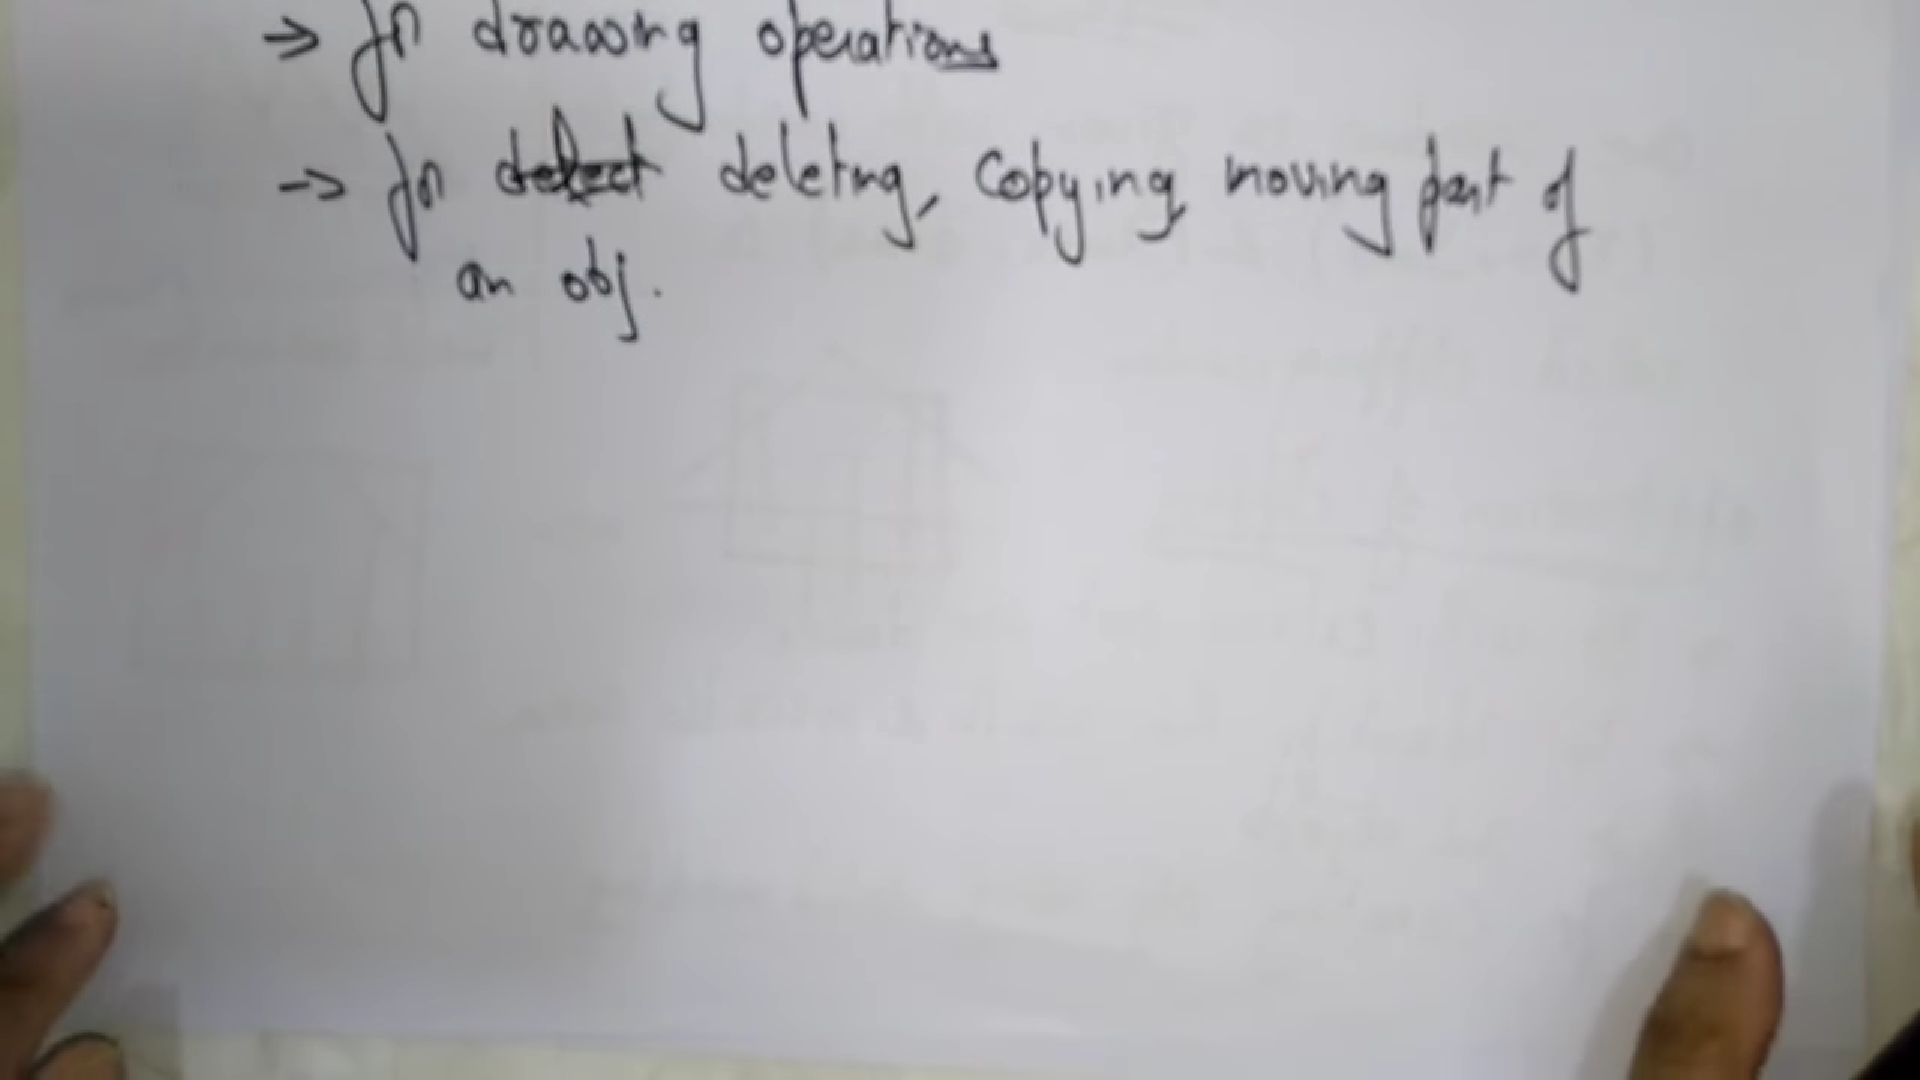 → for drawing operations
→ for deleting, Copying, moving part of
an obj.